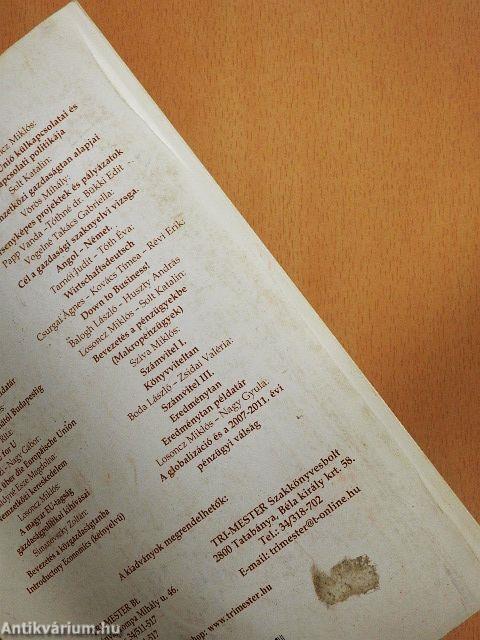 Losoncz Miklós:
Unió külkapcsolatai és
kapcsolati politikája
Solt Katalin:
nemzetközi gazdaságtan alapjai
Vörös Mihály:
Versenyképes projektek és pályázatok
Papp Vanda -Tóthné dr. Bükki Edit
Vogelné Takács Gabriella:
Cél a gazdasági szaknyelvi vizsga.
Angol - Német.
Tarnói Judit - Tóth Éva:
Wirtschaftsdeutsch
Csurgai Ágnes - Kovács Tímea - Révi Erik:
Down to Business!
Balogh László - Huszty András
Losoncz Miklós - Solt Katalin:
Bevezetés a pénzügyekbe
(Makropénzügyek)
Sziva Miklós:
Számvitel I.
Könyvviteltan
Boda László - Zsidai Valéria:
Számvitel III.
Eredménytan
Eredménytan példatár
Losoncz Miklós - Nagy Gyula:
A globalizáció és a 2007-2011. évi
pénzügyi válság
Budapestig
for U
Nagy Gábor:
über die Europäische Union
Este Magdolna:
nemzetközi kereskedelem
Losoncz Miklós:
A magyar EU-tagság
gazdaságpolitikai kihívásai
Simanovszky Zoltán:
Bevezetés a közgazdaságtanba
Introductory Economics (kétnyelvű)
A kiadványok megrendelhetők:
TRI-MESTER Szakkönyvesbolt
2800 Tatabánya, Béla király krt. 58.
Tel.: 34/318-702
E-mail: trimester@t-online.hu
TRI-MESTER Bt.
Pompa Mihály u. 46.
34/511-517
www.trimester.hu
Antikvárium.hu